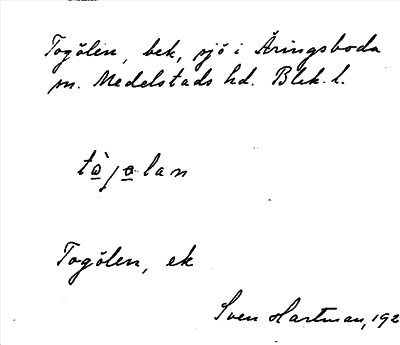 Togölen, bek, sjö i Åringsboda
sn. Medelstads hd. Blek. l.
tò̱jo̱lan
Togölen, ek
Sven Hartman, 192